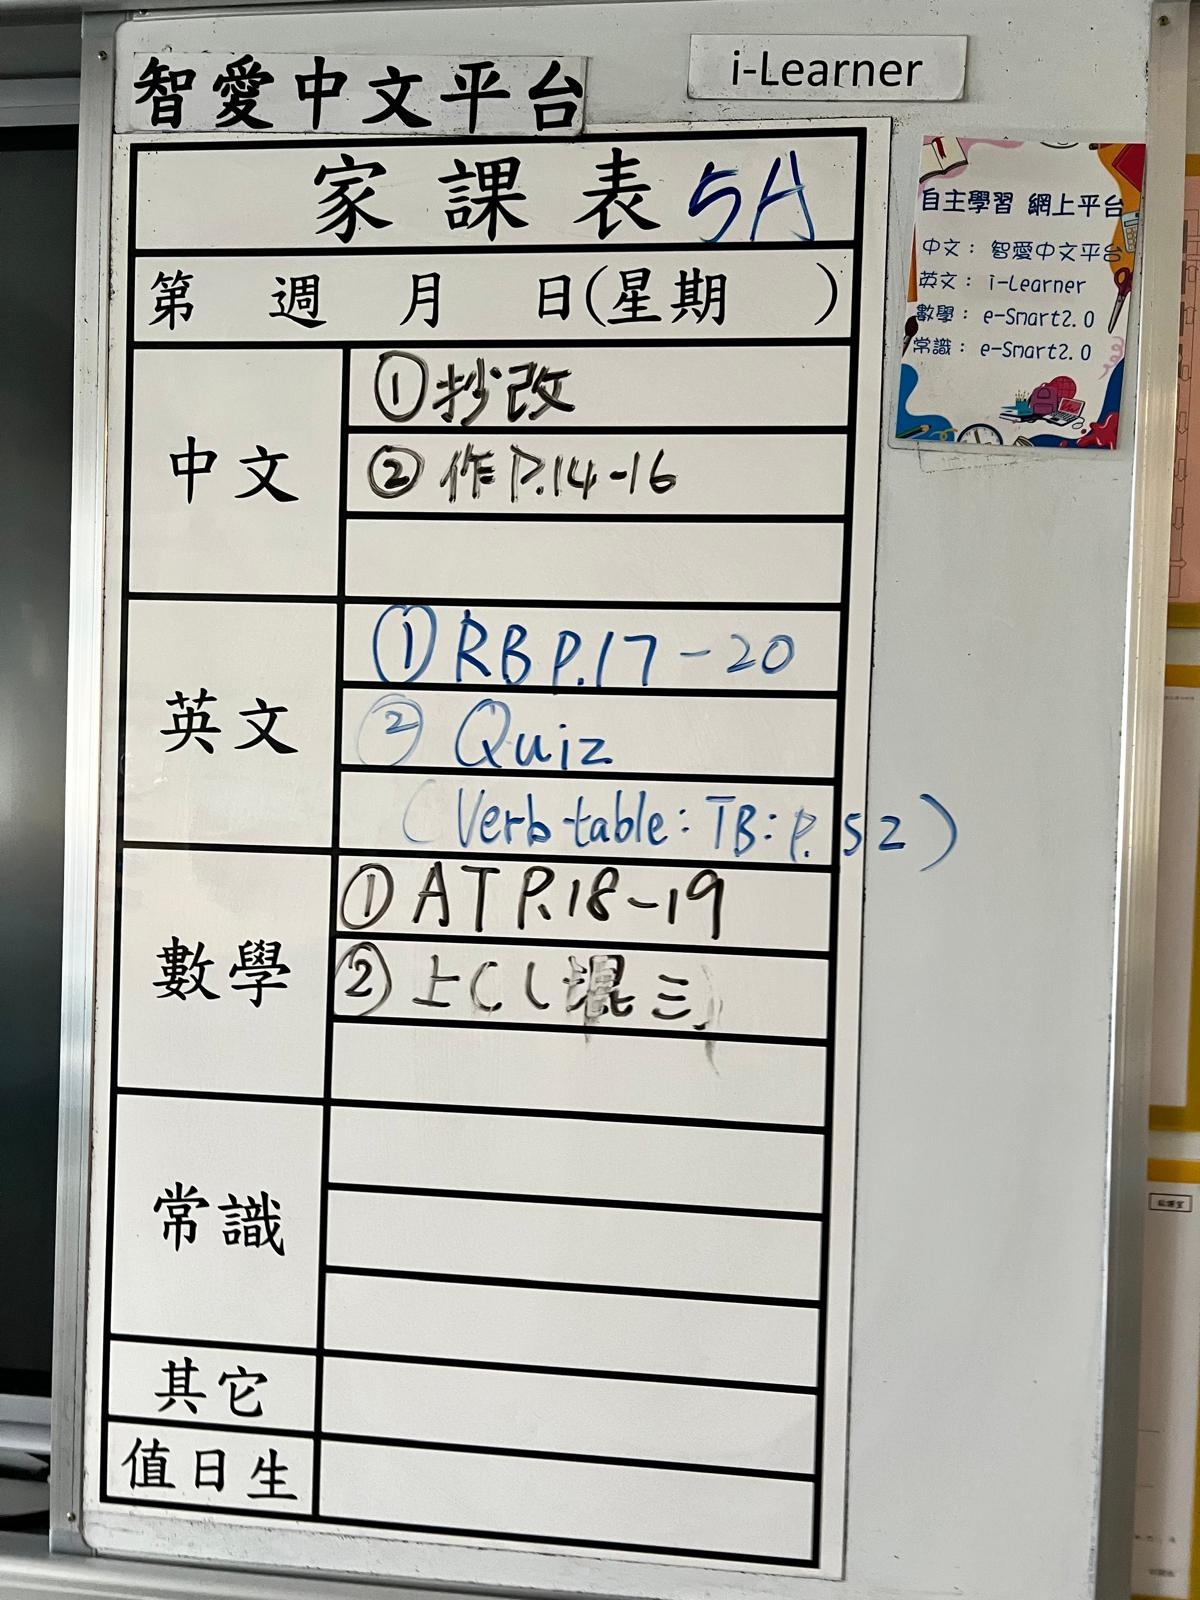 智愛中文平台
i-Learner
家課表 5A
第 週 月 日(星期 )
中文
①抄改
②作P.14-16
英文
①RB P.17-20
② Quiz
(Verb table: TB: P.52)
數學
①AT P.18-19
②上C(混三)
常識
其它
值日生
自主學習 網上平台
中文：智愛中文平台
英文：i-Learner
數學：e-Smart2.0
常識：e-Smart2.0